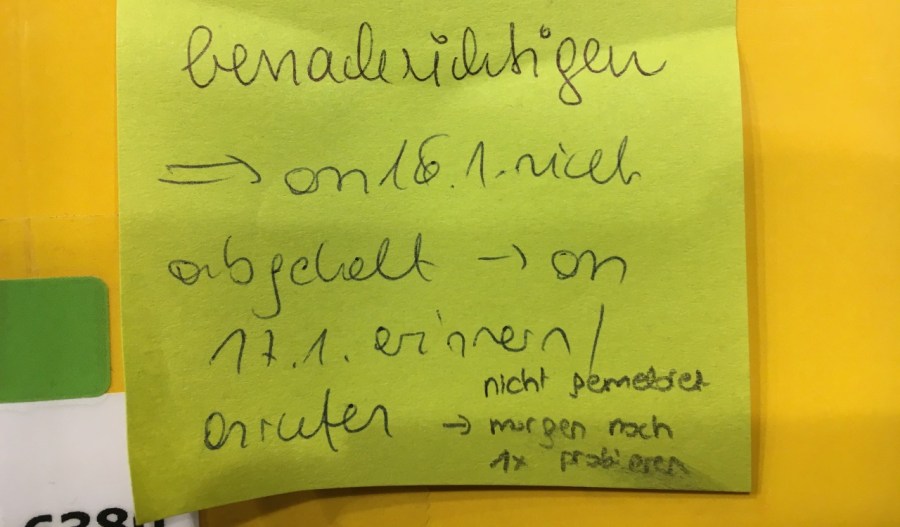 benachrichtigen
=> am 16.1. nicht
abgeholt -> am
17.1. erinnern/
anrufen
nicht gemeldet
-> morgen noch
1x probieren